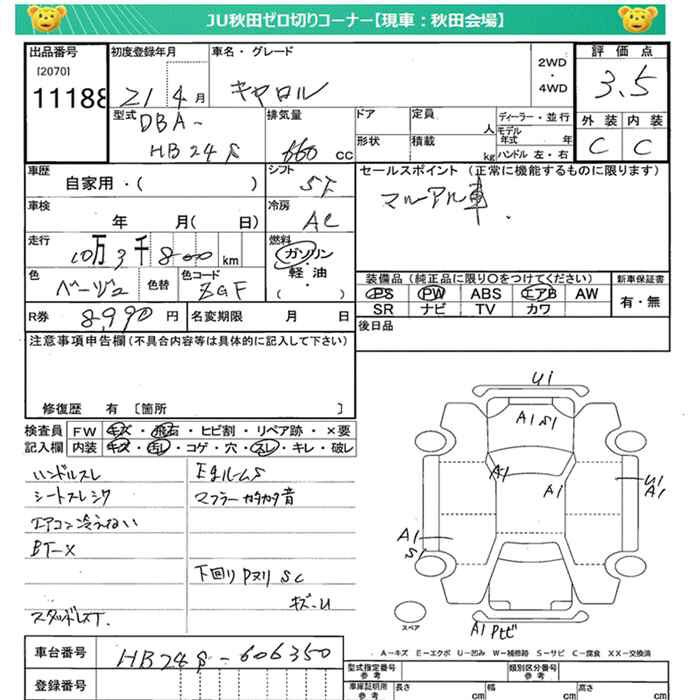 JU秋田ゼロ切りコーナー【現車：秋田会場】
出品番号
[2070]
11188
初度登録年月
21 4 月
車名・グレード
キャロル
2WD
・
4WD
評価点
3.5
外装 内装
C C
型式
DBA-
HB24S
排気量
660 cc
ドア
定員
人
形状
積載
kg
ディーラー・並行
モデル年式 年
ハンドル 左・右
車歴
自家用・( )
シフト
5F
セールスポイント (正常に機能するものに限ります)
マニュアル車.
車検
年 月( 日)
冷房
AC
走行
10万3千800 km
燃料
ガソリン
軽油
・
( )
色
ベージュ
色替
色コード
ZGF
装備品 (純正品に限り○をつけてください)
PS PW ABS エアB AW
SR ナビ TV カワ
新車保証書
有・無
R券 8,990 円
名変期限 月 日
後日品
注意事項申告欄(不具合内容等は具体的に記入して下さい)
修復歴 有 〔箇所 〕
検査員
記入欄
FW キズ・飛石・ヒビ割・リペア跡・×要
内装 キズ・汚レ・コゲ・穴・スレ・キレ・破レ
ハンドルスレ
シートスレシワ
エアコン冷えない
BT-X
スタッドレスT.
マフラーカタカタ音
下回りPヌリ SC
キズ-U
U1
A1 S1
A1
A1
U1
A1
A1
S1
A1 Pヒビ
スペア
A－キズ E－エクボ U－凹み W－補修跡 S－サビ C－腐食 XX－交換済
車台番号
HB24S-606350
登録番号
型式指定番号
参考
類別区分番号
参考
車庫証明用
参考
長さ cm
幅 cm
高さ cm